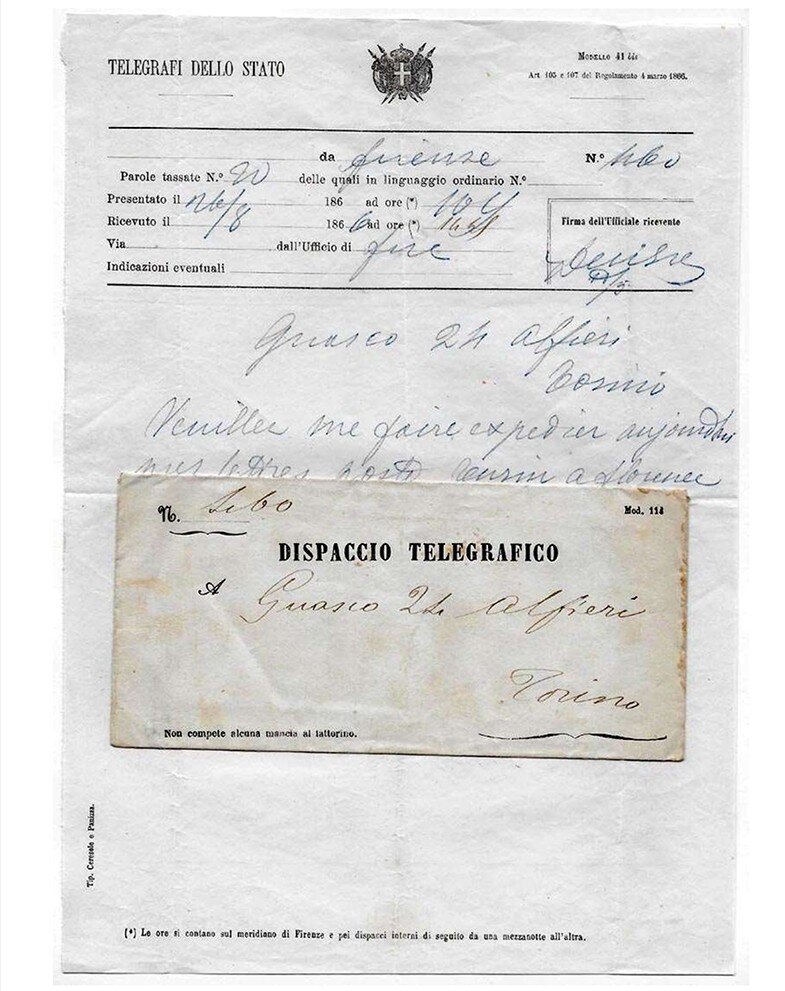 TELEGRAFI DELLO STATO
MODELLO 41 bis
Art. 105 e 107 del Regolamento 4 marzo 1866.
da firenze N.º 460
Parole tassate N.º 20 delle quali in linguaggio ordinario N.º
Presentato il 26/8 186 ad ore (*) 10
Ricevuto il 186 6 ad ore (*)
Firma dell'Ufficiale ricevente
Via dall'Ufficio di fire
Indicazioni eventuali
Guasco 24 Alfieri
Torino
Veuillez me faire expedier aujourdhui
mes lettres poste Turin a florence
N. 460
Mod. 114
DISPACCIO TELEGRAFICO
A Guasco 24 Alfieri
Torino
Non compete alcuna mancia al fattorino.
Tip. Ceresole e Panizza.
(*) Le ore si contano sul meridiano di Firenze e pei dispacci interni di seguito da una mezzanotte all'altra.